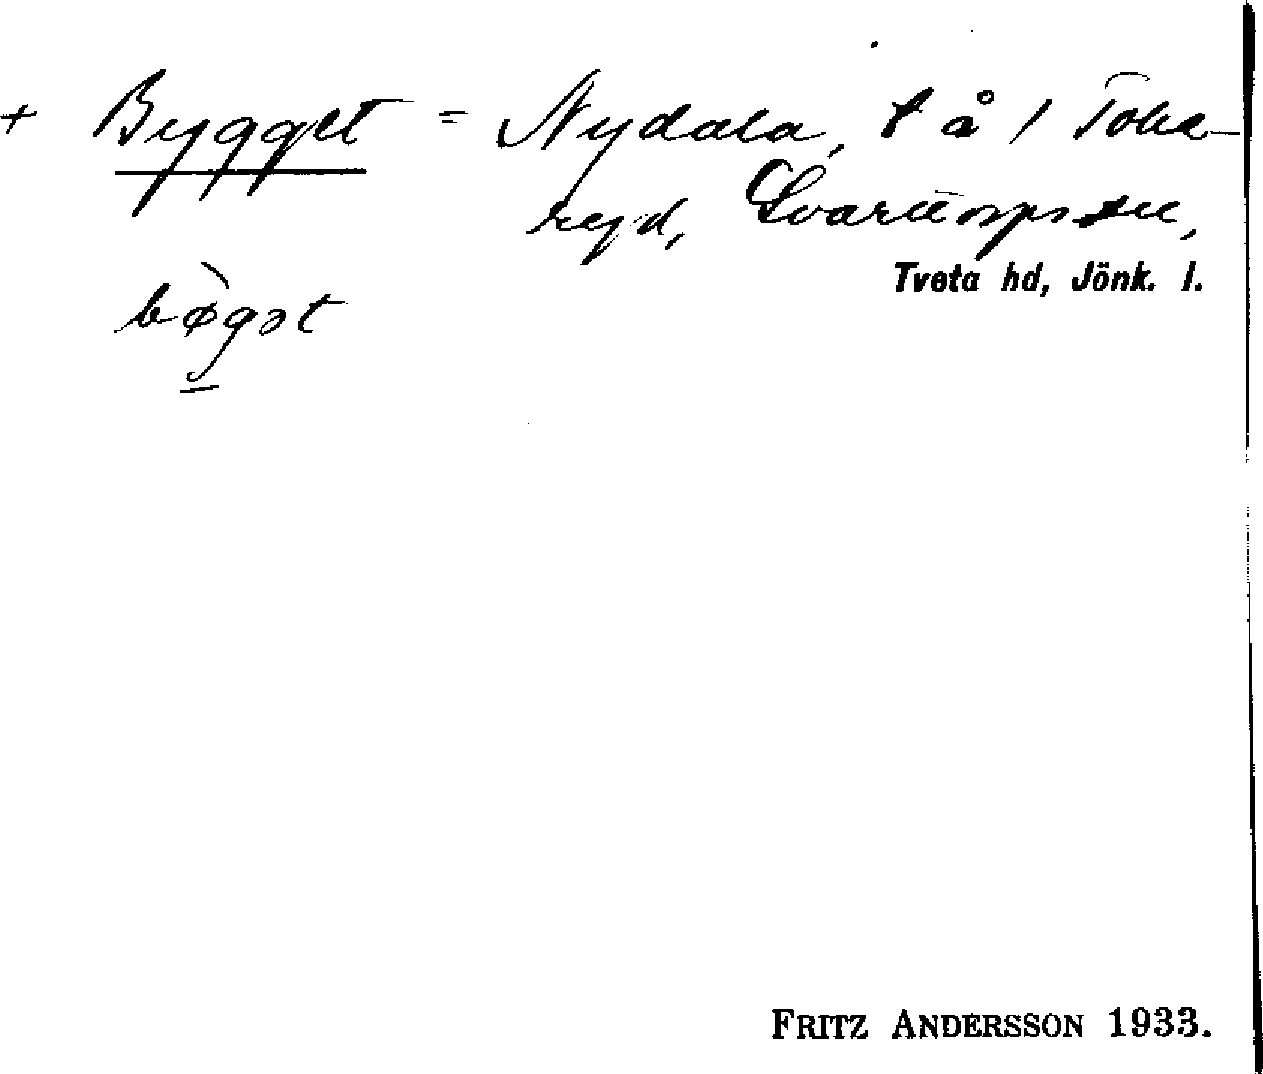 + Bygget = Nydala, t å 1 Toka-
ryd, Svarttorps sn,
Tveta hd, Jönk. l.
bøgət
FRITZ ANDERSSON 1933.